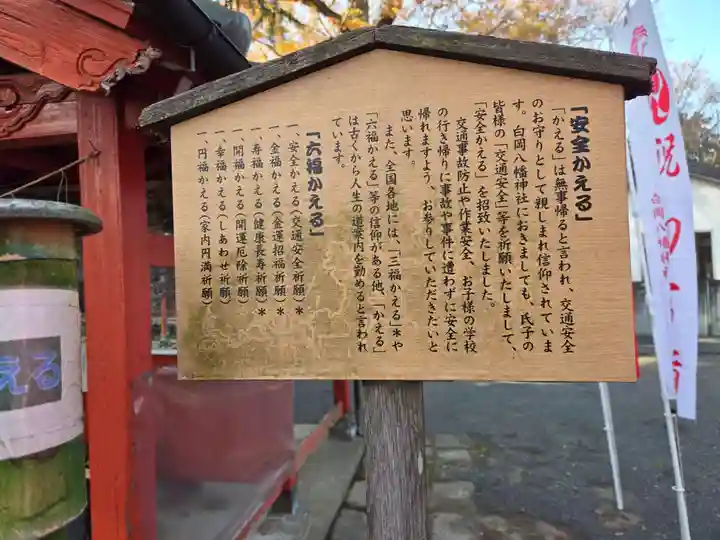 「安全かえる」
「かえる」は無事帰ると言われ、交通安全
のお守りとして親しまれ信仰されていま
す。白岡八幡神社におきましても、氏子の
皆様の「交通安全」等を祈願いたしまして、
「安全かえる」を招致いたしました。
交通事故防止や作業安全、お子様の学校
の行き帰りに事故や事件に遭わずに安全に
帰れますよう、お参りしていただきたいと
思います。
また、全国各地には、「三福かえる」＊や
「六福かえる」等の信仰がある他、「かえる」
は古くから人生の道案内を勤めると言われ
ています。
「六福かえる」
一、安全かえる（交通安全祈願）＊
一、金福かえる（金運招福祈願）＊
一、寿福かえる（健康長寿祈願）＊
一、開福かえる（開運厄除祈願）
一、幸福かえる（しあわせ祈願）
一、円福かえる（家内円満祈願）
える
祝
白岡八幡神社